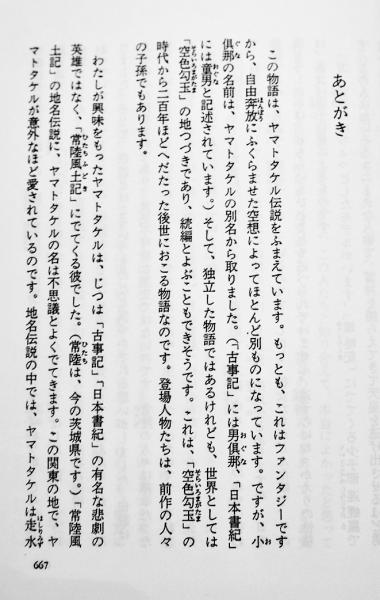 あとがき
この物語は、ヤマトタケル伝説をふまえています。もっとも、これはファンタジーです
から、自由奔放にふくらませた空想によってほとんど別ものになっています。ですが、小
倶那の名前は、ヤマトタケルの別名から取りました。(「古事記」には男倶那、「日本書紀」
には童男と記述されています。)そして、独立した物語ではあるけれども、世界としては
「空色勾玉」の地つづきであり、続編とよぶこともできそうです。これは、「空色勾玉」の
時代から二百年ほどへだたった後世におこる物語なのです。登場人物たちは、前作の人々
の子孫でもあります。
わたしが興味をもったヤマトタケルは、じつは「古事記」「日本書紀」の有名な悲劇の
英雄ではなく、「常陸風土記」にでてくる彼でした。(常陸は、今の茨城県です。)「常陸風
土記」の地名伝説に、ヤマトタケルの名は不思議とよくでてきます。この関東の地で、ヤ
マトタケルが意外なほど愛されているのです。地名伝説の中では、ヤマトタケルは走水
667